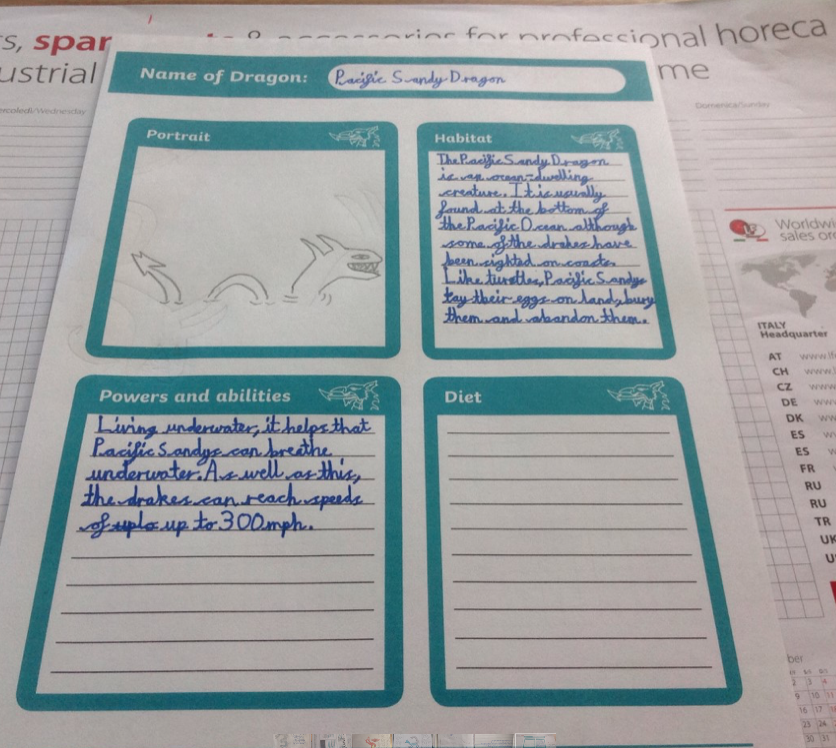 & accessories for professional horeca
ustrial
me
Mercoledì/Wednesday
Domenica/Sunday
Name of Dragon: Pacific Sandy Dragon
Portrait
Habitat
The Pacific Sandy Dragon
is an ocean-dwelling
creature. It is usually
found at the bottom of
the Pacific Ocean although
some of the drakes have
been sighted on coasts.
Like turtles, Pacific Sandys
lay their eggs on land, bury
them and abandon them.
Powers and abilities
Living underwater, it helps that
Pacific Sandys can breathe
underwater. As well as this,
the drakes can reach speeds
of upto up to 300mph.
Diet
Worldwi
sales or
ITALY
Headquarter
AT
CH
CZ
DE
DK
ES
ES
FR
RU
RU
TR
UK